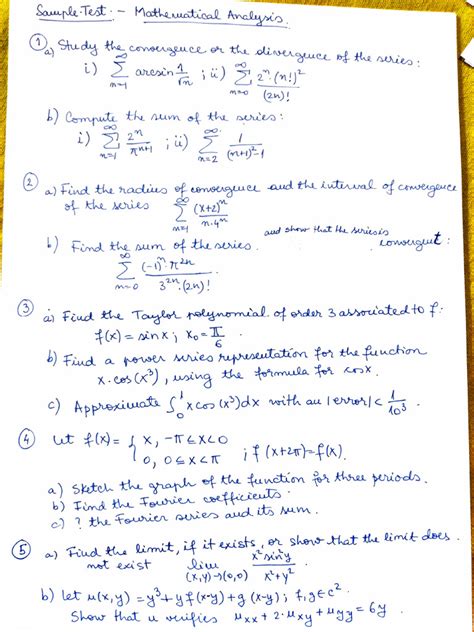 Sample Test :- Mathematical Analysis.
① a) Study the convergence or the divergence of the series:
i) ∞ Σ n=1 arcsin 1/√n ; ii) ∞ Σ n=0 2^n·(n!)^2/(2n)!
b) Compute the sum of the series:
i) ∞ Σ n=1 2^n/π^(n+1) ; ii) ∞ Σ n=2 1/((n+1)^2-1)
② a) Find the radius of convergence and the interval of convergence
of the series ∞ Σ n=1 (x+2)^n/(n·4^n)
b) Find the sum of the series and show that the series is convergent:
∞ Σ n=0 (-1)^n·π^(2n)/(3^(2n)·(2n)!)
③ a) Find the Taylor polynomial of order 3 associated to f:
f(x) = sin x ; x₀ = π/6.
b) Find a power series representation for the function
x·cos(x³), using the formula for cos x.
c) Approximate ∫₀¹ x cos(x³)dx with an |error| < 1/10³
④ Let f(x) = { x, -π ≤ x < 0
0, 0 ≤ x < π ; f(x+2π) = f(x).
a) Sketch the graph of the function for three periods.
b) Find the Fourier coefficients.
c) ? the Fourier series and its sum.
⑤ a) Find the limit, if it exists, or show that the limit does
not exist lim (x,y)→(0,0) x² sin²y/(x²+y²)
b) Let u(x,y) = y³ + y f(x-y) + g(x-y); f,g ∈ C².
Show that u verifies u_xx + 2·u_xy + u_yy = 6y